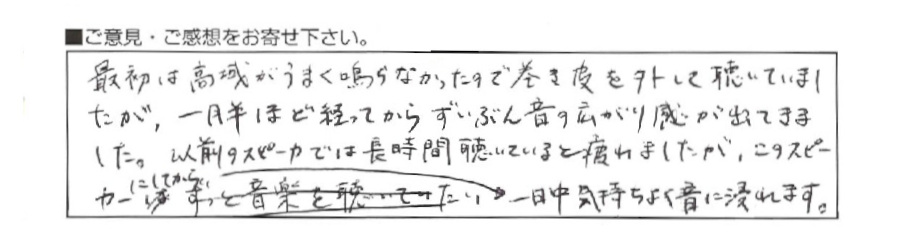 ■ご意見・ご感想をお寄せ下さい。
最初は高域がうまく鳴らなかったので巻き皮を外して聴いていまし
たが、一月半ほど経ってからずいぶん音の広がり感が出てきま
した。以前のスピーカでは長時間聴いていると疲れましたが、このスピー
にしてから
カーは ずっと音楽を聴いてたい 一日中気持ちよく音に浸れます。